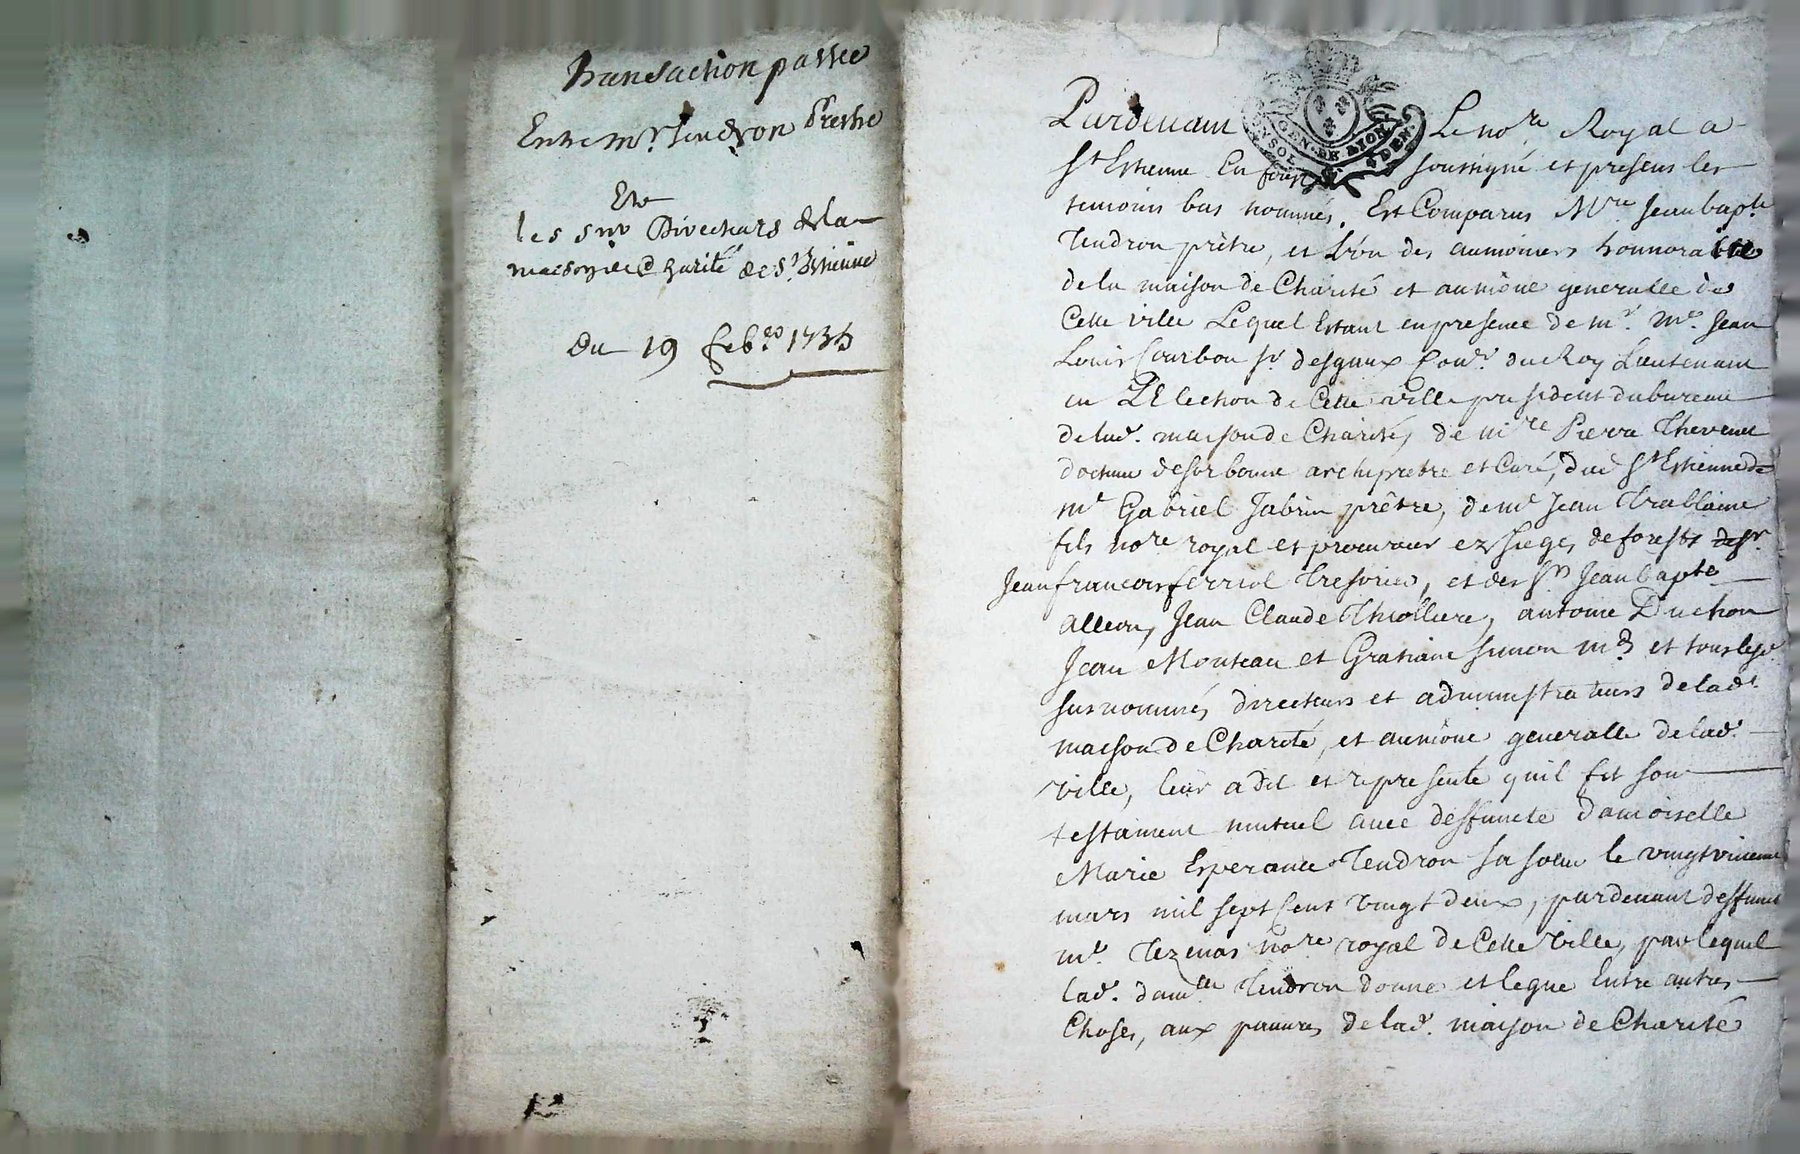 Transaction passée
Entre mr. Tendron Prestre
Et
les srs Directeurs de la
maison de Charité de St. Estienne
du 19 feb.ro 1735
Pardevant Le no.re Royal a
St Estienne En forest soussigné et presens les
temoins bas nommés. Est Comparus M.re Jean bap.te
Tendron prêtre, et L'vn des aumôniers honnorable
de la maison de Charité et aumône generalle de
Cette ville Lequel Estant en presence de mr. Me. Jean
Louis Courbon sr. desgaux Con.er du Roy Lieutenant
en L'Election de Cette ville president du bureau
de lad. maison de Charité, de m.re Pierre Thevenet
docteur de sorbonne archiprebtre et Curé, dud St Estienne de
mr Gabriel Jabrin prêtre, de me Jean Trablaine
fils no.re royal et procureur ez sieges de forests de sr.
Jean francois ferriol Tresorier, et des srs Jean bapte
alleon, Jean Claude Thiolliere, antoine Duchon
Jean Monteau et Gratiane simon mds et tous les
susnommés directeurs et administrateurs de lad.
maison de Charité, et aumône generalle de lad.
ville, leur a dit et representé qu'il fit son
testament mutuel avec deffuncte damoiselle
Marie Esperance Tendron sa sœur le vingt
mars mil sept Cent vingt deux, pardevant deffunct
me. Tezenas no.re royal de Cette ville, par lequel
lad. dam.lle Tendron donne et legue Entre autres
Choses, aux pauvres de lad. maison de Charité
GEN. DE LION